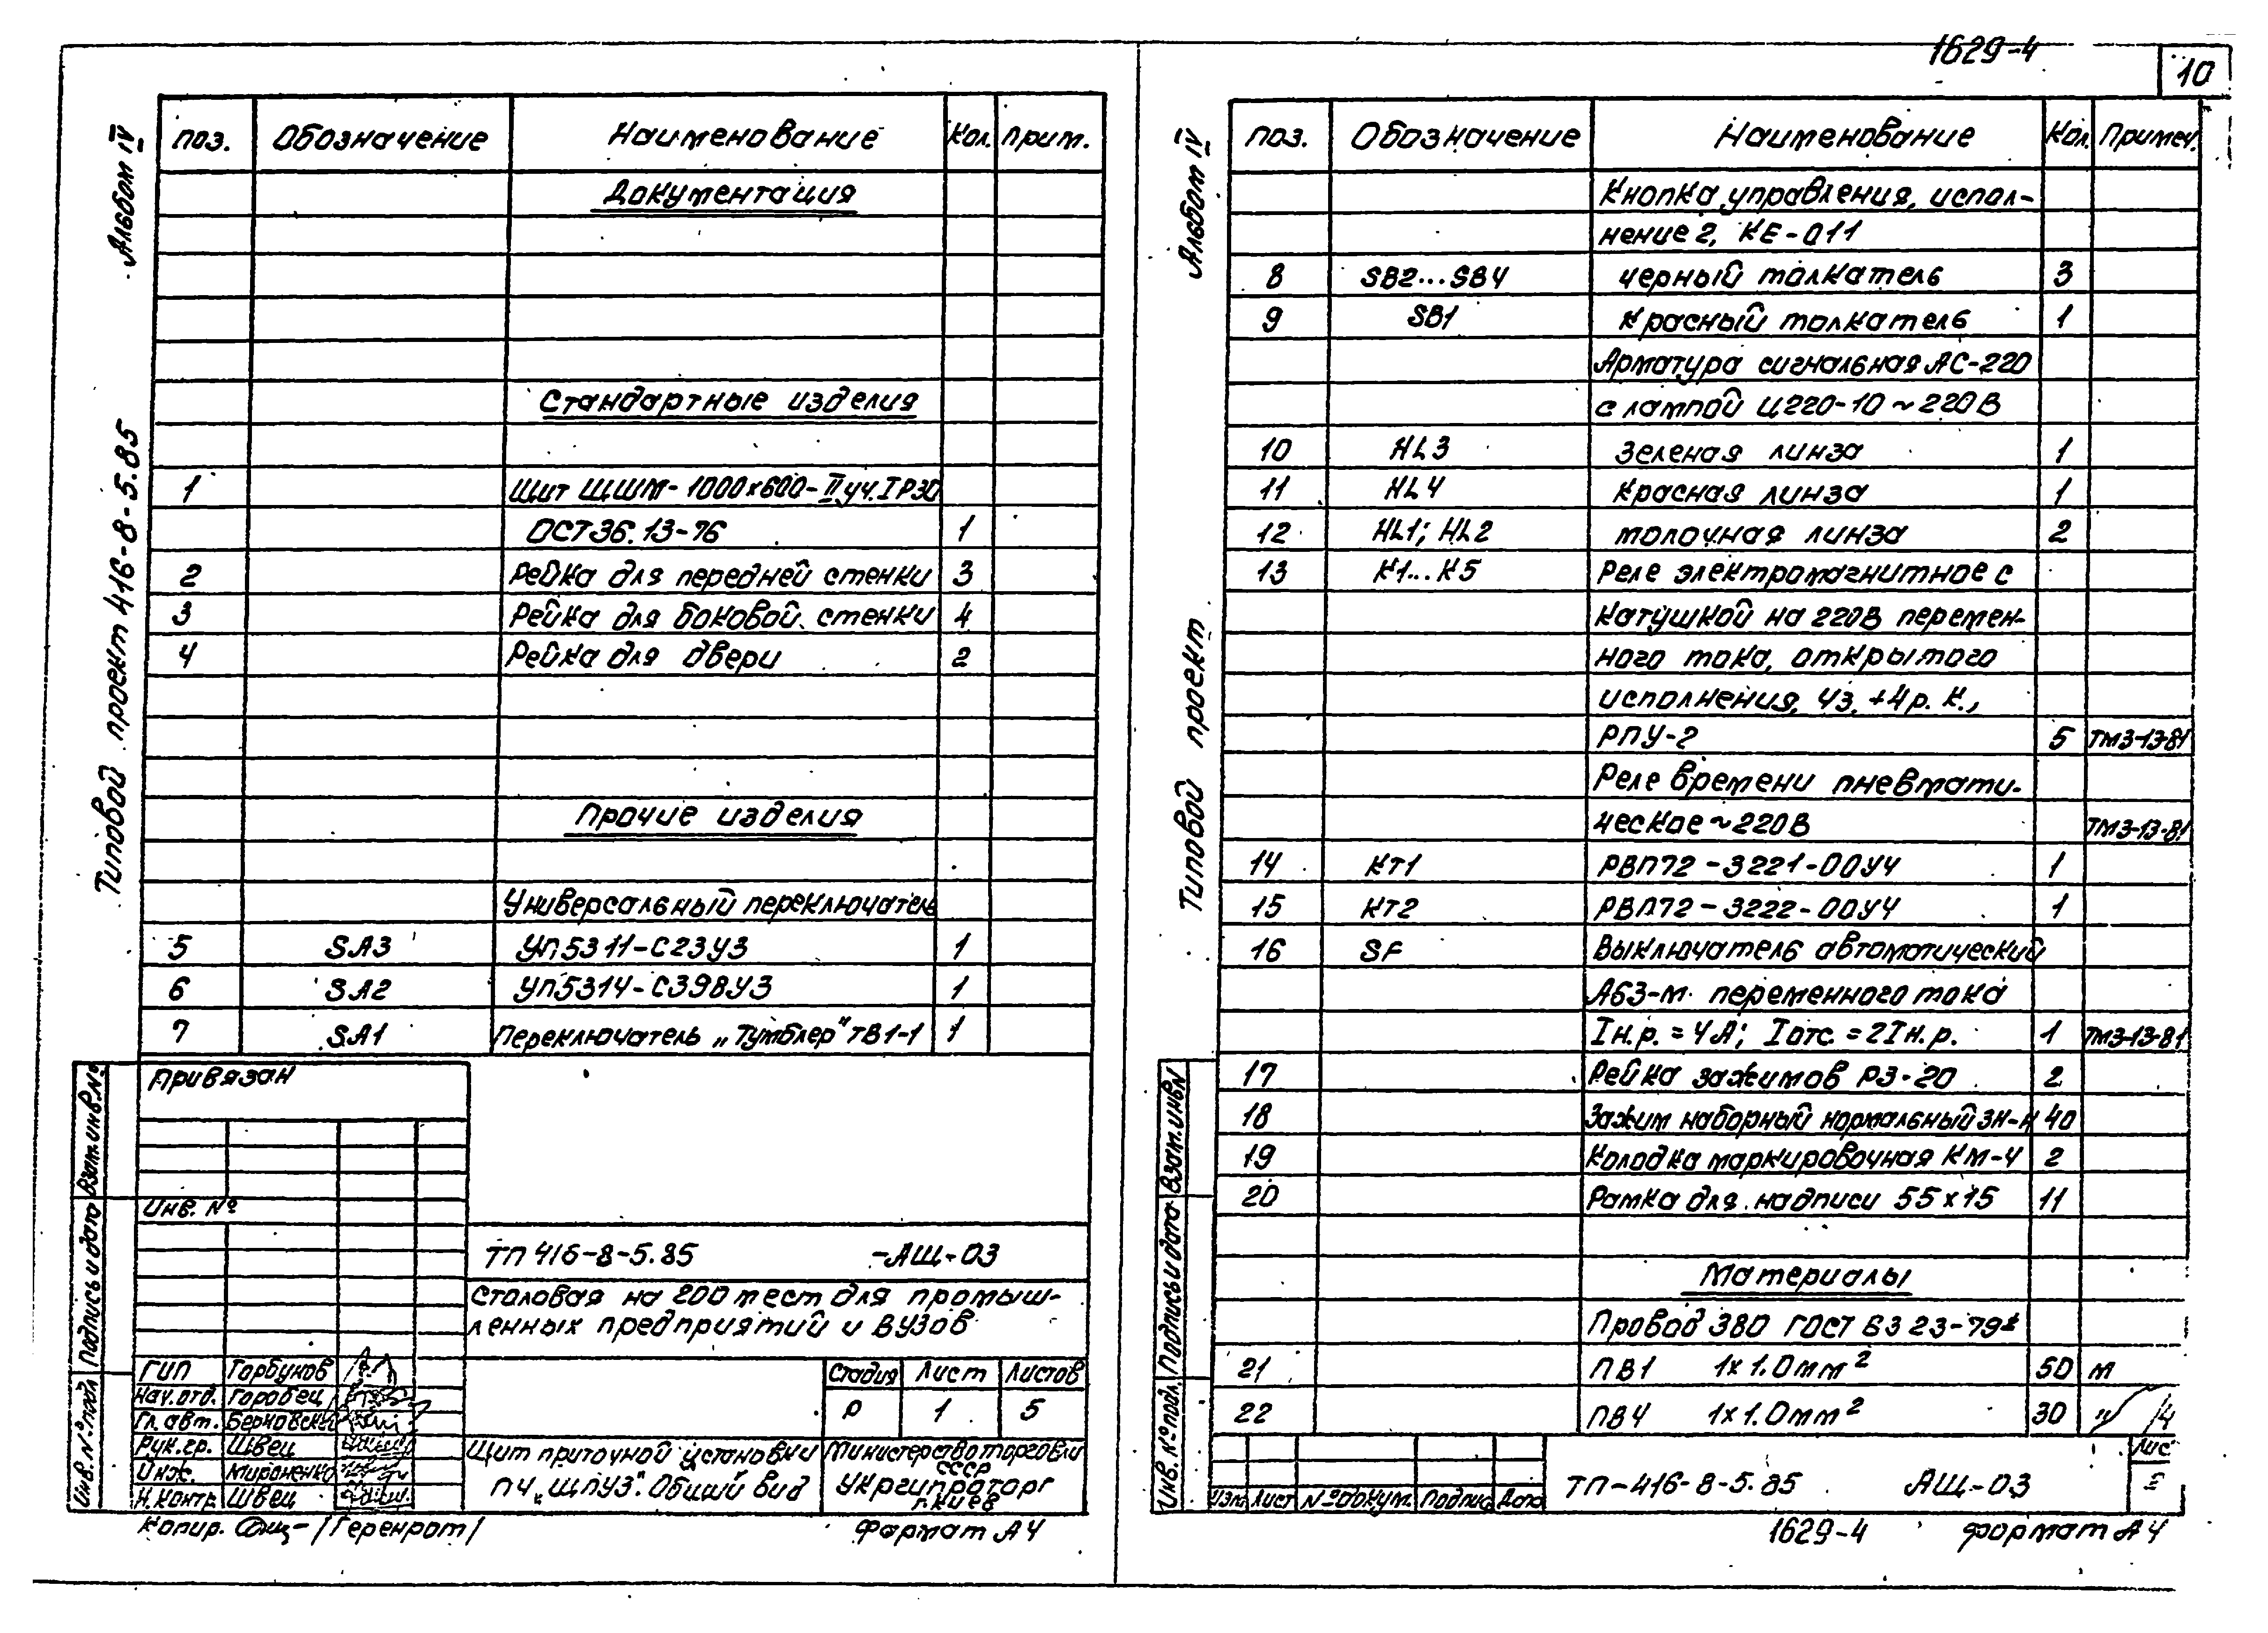 1629-4
10
Альбом IV
Типовой проект 416-8-5.85
поз. Обозначение Наименование Кол. Прим.
Документация
Стандартные изделия
1 Щит ЩШМ-1000х600-II уч. IP30
ОСТ36.13-76 1
2 Рейка для передней стенки 3
3 Рейка для боковой стенки 4
4 Рейка для двери 2
Прочие изделия
Универсальный переключатель
5 SA3 УП5311-С23У3 1
6 SA2 УП5314-С398У3 1
7 SA1 Переключатель „Тумблер" ТВ1-1 1
Привязан
Инв. №
Взам.инв.№
Подпись и дата
Инв.№ подл.
ТП 416-8-5.85 -АЩ-03
Столовая на 200 мест для промыш-
ленных предприятий и ВУЗов
ГИП Горбунов
Нач.отд. Горобец
Гл.авт. Берковский
Рук.гр. Швец
Инж. Мироненко
Н.контр. Швец
Стадия Лист Листов
Р 1 5
Щит приточной установки
П4 „ЩПУ3". Общий вид
Министерство торговли
СССР
Укргипроторг
г. Киев
Копир. /Геренрот/
Формат А4
Альбом IV
Типовой проект
поз. Обозначение Наименование Кол. Примеч.
Кнопка управления, испол-
нение 2, КЕ-011
8 SB2...SB4 черный толкатель 3
9 SB1 Красный толкатель 1
Арматура сигнальная АС-220
с лампой Ц220-10 ~220В
10 HL3 Зеленая линза 1
11 HL4 Красная линза 1
12 HL1; HL2 молочная линза 2
13 К1...К5 Реле электромагнитное с
катушкой на 220В перемен-
ного тока, открытого
исполнения, 4з.+4р.к.,
РПУ-2 5 ТМ3-13-81
Реле времени пневмати-
ческое ~220В ТМ3-13-81
14 КТ1 РВП72-3221-00У4 1
15 КТ2 РВП72-3222-00У4 1
16 SF Выключатель автоматический
А63-М переменного тока
Iн.р.=4А; Iотс.=2Iн.р. 1 ТМ3-13-81
17 Рейка зажимов РЗ-20 2
18 Зажим наборный нормальный ЗН-Н 40
19 Колодка маркировочная КМ-4 2
20 Рамка для надписи 55х15 11
Материалы
Провод 380 ГОСТ 6323-79*
21 ПВ1 1х1.0мм² 50 м
22 ПВ4 1х1.0мм² 30 "
Взам.инв.№
Подпись и дата
Инв.№ подл.
Изм. Лист №докум. Подпись Дата
ТП-416-8-5.85 АЩ-03
Лис
1629-4 формат А4